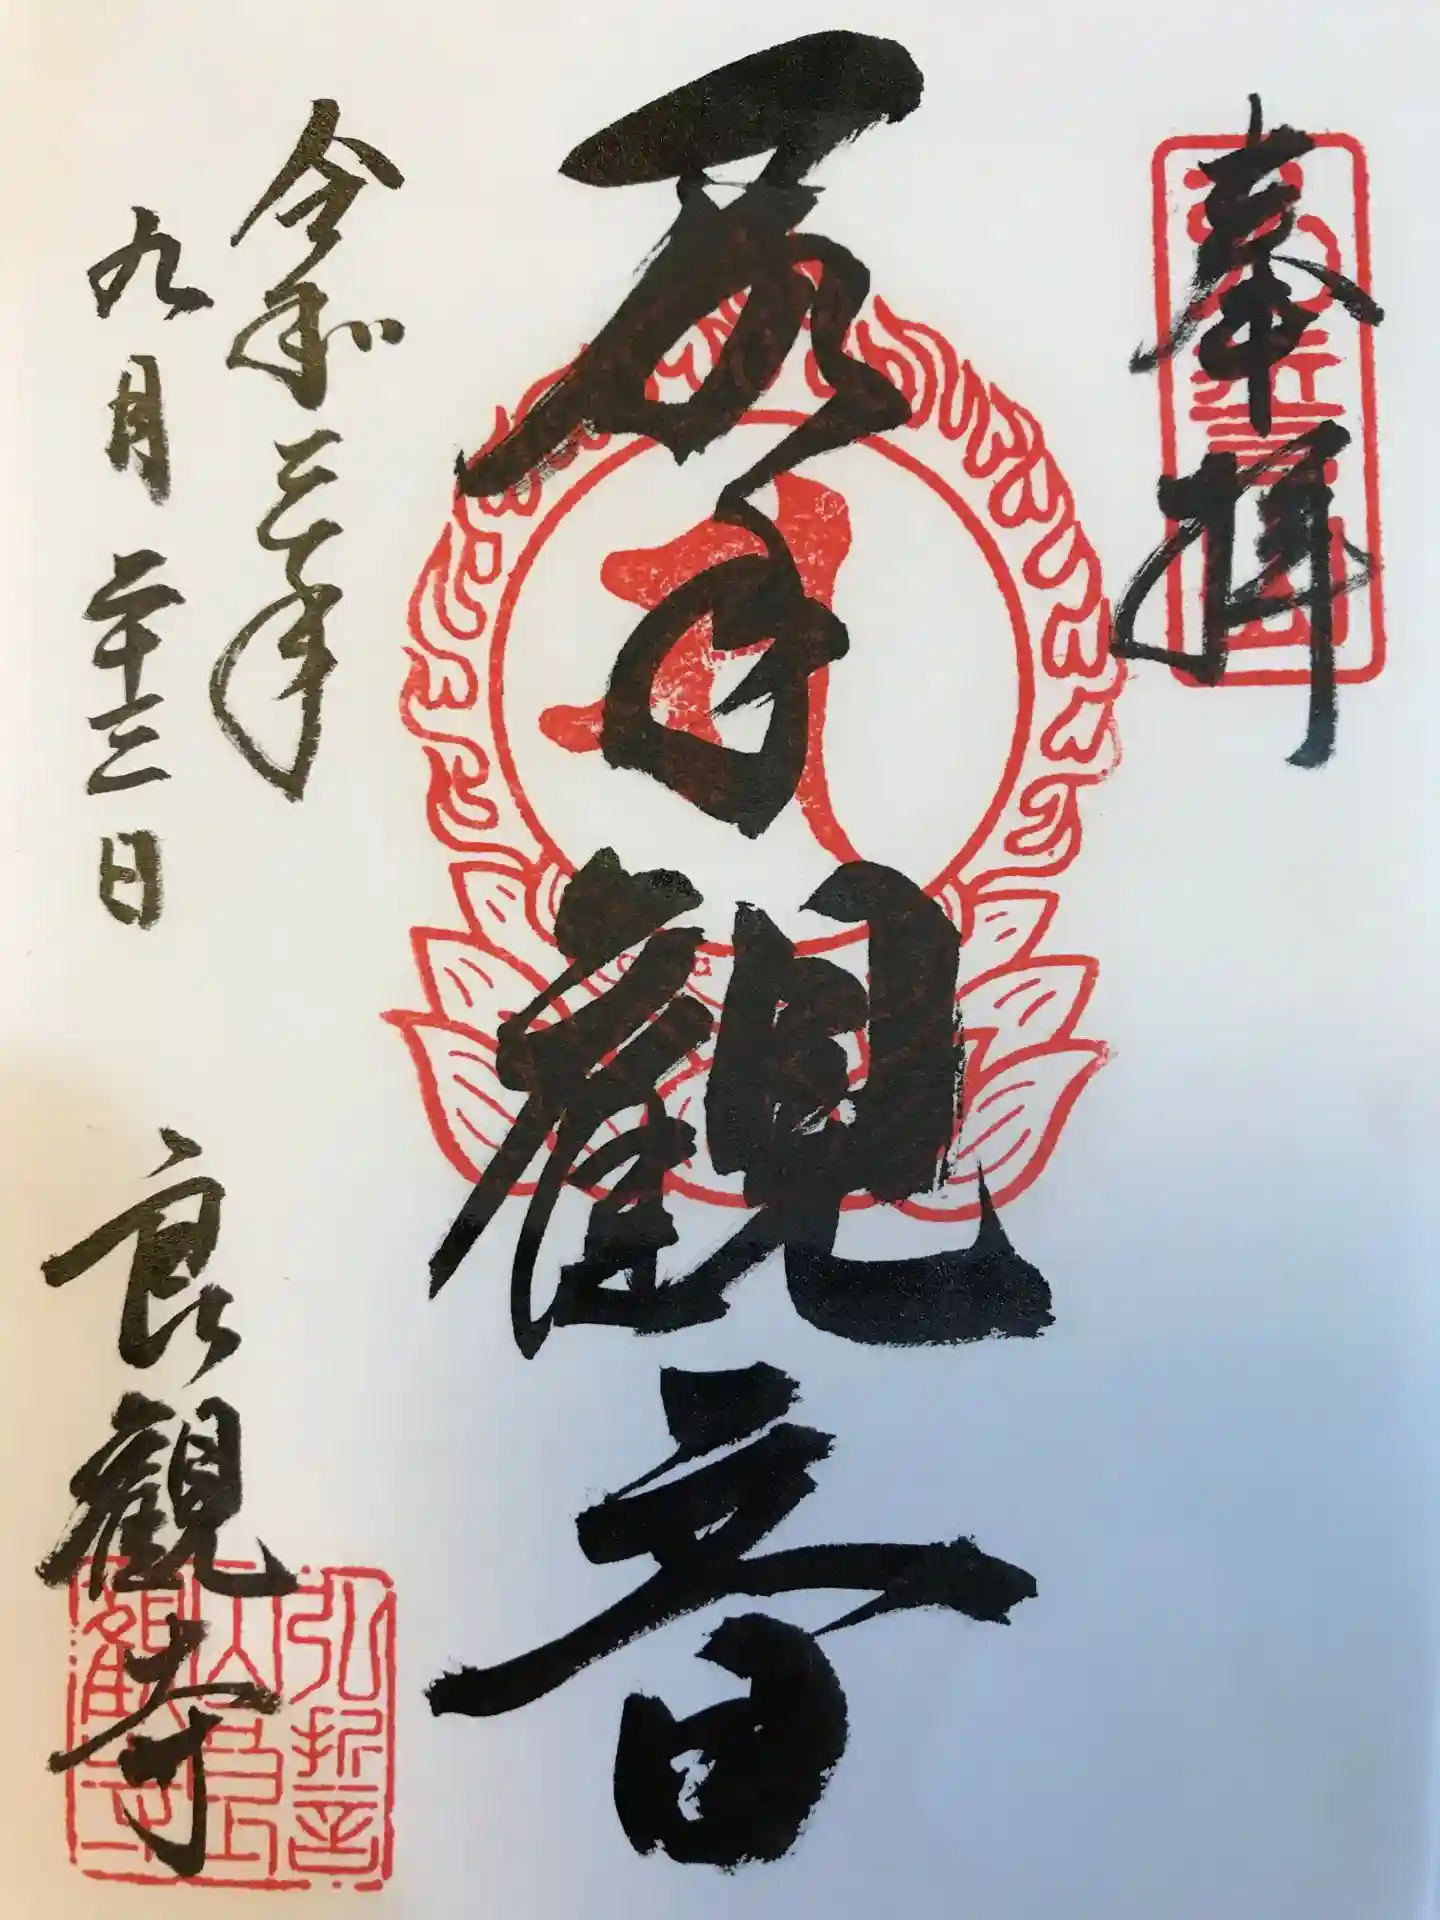 奉拝
観音
令和三年
九月二十三日
良観寺